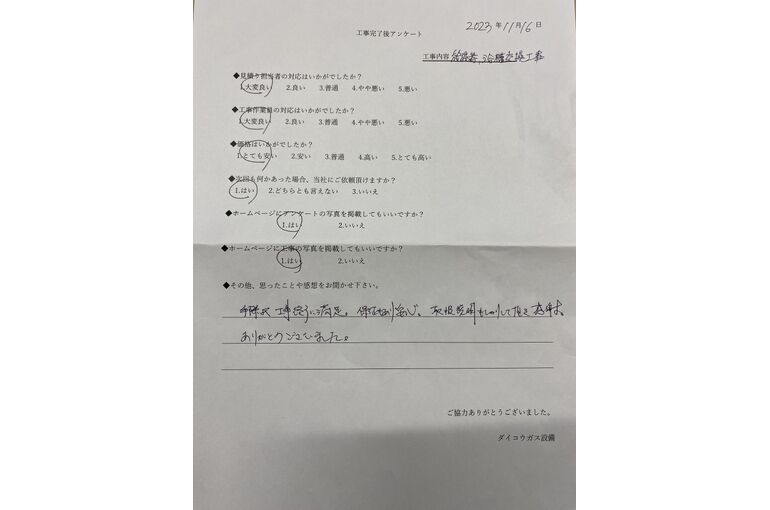 2023年11月16日
工事完了後アンケート
工事内容 給湯器、浴槽交換工事
◆見積り担当者の対応はいかがでしたか？
1.大変良い 2.良い 3.普通 4.やや悪い 5.悪い
◆工事作業員の対応はいかがでしたか？
1.大変良い 2.良い 3.普通 4.やや悪い 5.悪い
◆価格はいかがでしたか？
1.とても安い 2.安い 3.普通 4.高い 5.とても高い
◆次回も何かあった場合、当社にご依頼頂けますか？
1.はい 2.どちらとも言えない 3.いいえ
◆ホームページにアンケートの写真を掲載してもいいですか？
1.はい 2.いいえ
◆ホームページに工事の写真を掲載してもいいですか？
1.はい 2.いいえ
◆その他、思ったことや感想をお聞かせ下さい。
工事 満足。 取扱説明もしっかりして頂き
ありがとうございました。
ご協力ありがとうございました。
ダイコウガス設備